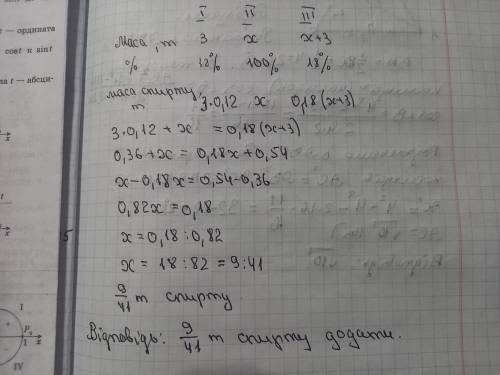 t — ордината
cost и sint
на t — абсци-
I II III
Маса, т 3 x x+3
% 12% 100% 18%
маса спирту
т 3·0,12 x 0,18(x+3)
3·0,12 + x = 0,18(x+3)
0,36+x = 0,18x+0,54
x-0,18x = 0,54-0,36
0,82x = 0,18
x = 0,18 : 0,82
x = 18 : 82 = 9 : 41
9/41 т спирту
Відповідь: 9/41 т спирту додати.
5
I
1
x
IV